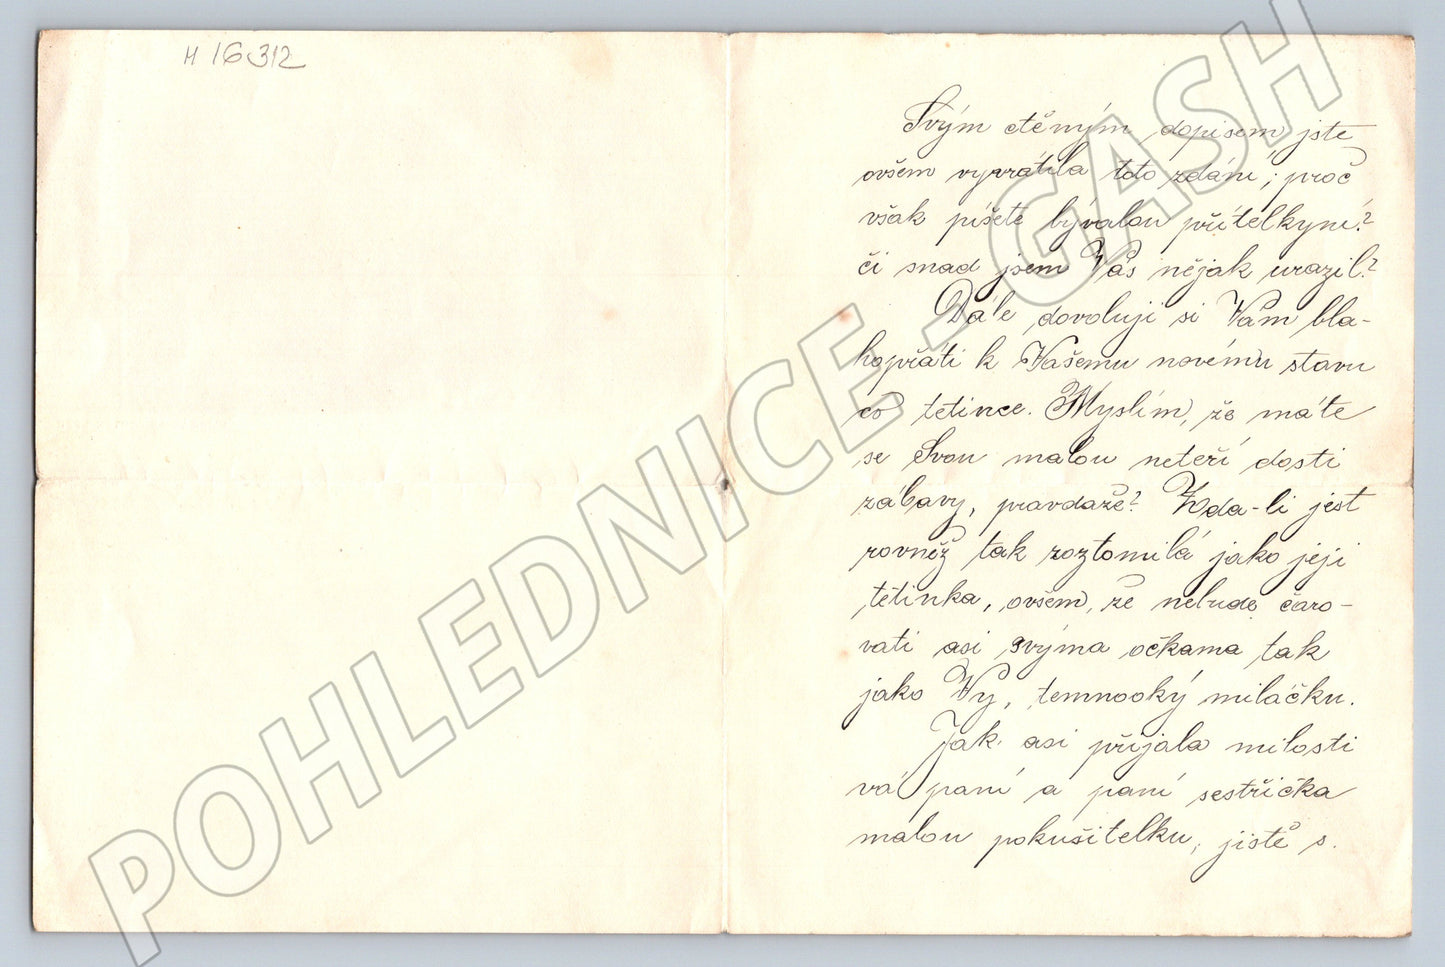 H 16312
Svým ctěným dopisem jste
ovšem vyvrátila toto zdání; proč
však píšete bývalou přítelkyní?
či snad jsem Vás nějak urazil?
Dále dovoluji si Vám bla-
hopřáti k Vašemu novému stavu
co tetince. Myslím, že máte
se Svou malou neteří dosti
zábavy, pravdaže? Zda-li jest
rovněž tak roztomilá jako její
tetinka, ovšem, že nebude čaro-
vati asi svýma očkama tak
jako Vy, temnooký miláčku.
Jak asi přijala milosti
vá paní a paní sestřička
malou pokušitelku, jistě s.
POHLEDNICE - GASH